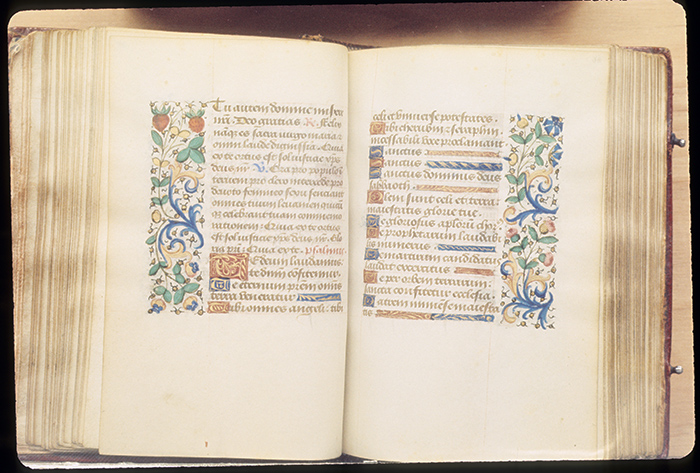 Tu autem domine misere
nr̃i. Deo gratias. R. Felix
naq̃ es sacra virgo maria: ⁊
omni laude dignissīa. Quia
ex te ortus est sol iusticie xp̃s
deus nr̃. V. Ora pro populo Inter
veni pro clero intercede pro
devoto femineo sexu senciant
omnes tuum levamen quicũ
q̃ celebrant tuam commemo
rationem: Quia ex te ortus
est sol iusticie xp̃s deus nr̃. Glo
ria pr̃i. Quia ex te. psalmus.
Te deum laudamus:
te dñm cõfitemur.
Te eternum pr̃em omnis
terra veneratur
Tibi omnes angeli: tibi
celi et universe potestates.
Tibi cherubin ⁊ seraphin:
incessabili voce proclamant
Sanctus
Sanctus
Sanctus dominus deus
sabaoth.
Pleni sunt celi et terra
maiestatis glorie tue.
Te gloriosus apl̃orum chor9
Te prophetarum laudabi
lis numerus
Te martirum candidat9
laudat exercitus
Te per orbem terrarum:
sancta confitetur ecclesia.
Patrem immense maiesta
tis